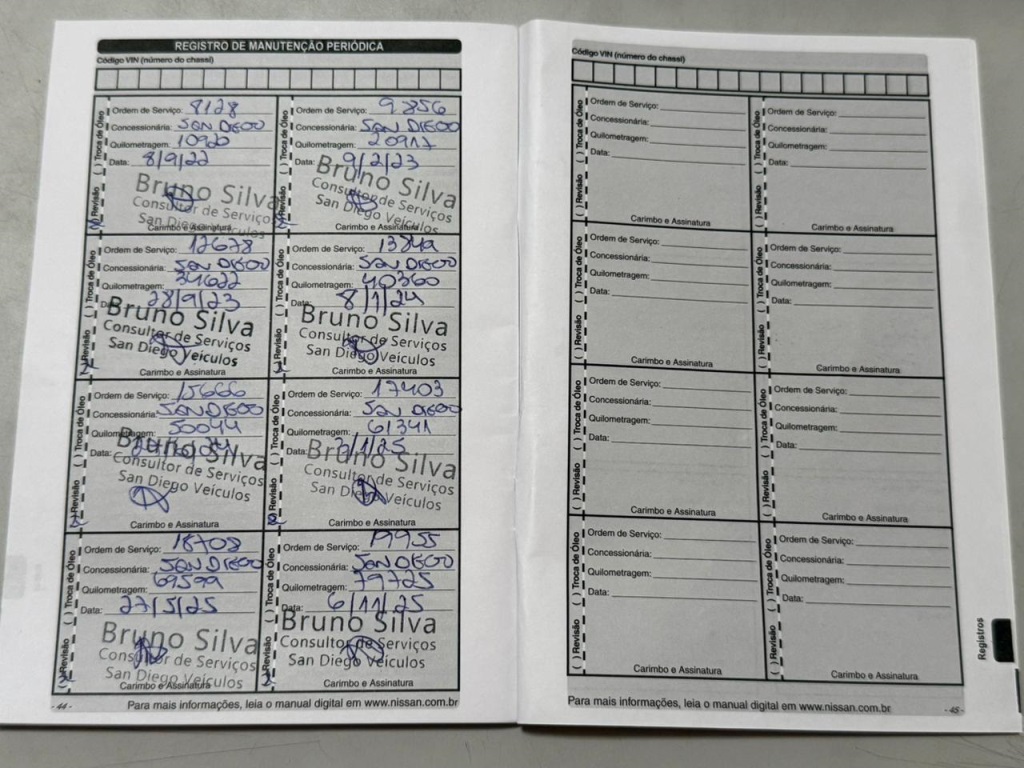 REGISTRO DE MANUTENÇÃO PERIÓDICA
Código VIN (número do chassi)
( ) Revisão ( ) Troca de Óleo
Ordem de Serviço: 8128
Concessionária: SAN DIEGO
Quilometragem: 10920
Data: 8/9/22
Bruno Silva
Consultor de Serviços
San Diego Veículos
Carimbo e Assinatura
( ) Revisão ( ) Troca de Óleo
Ordem de Serviço: 9856
Concessionária: SAN DIEGO
Quilometragem: 20917
Data: 9/2/23
Bruno Silva
Consultor de Serviços
San Diego Veículos
Carimbo e Assinatura
( ) Revisão ( ) Troca de Óleo
Ordem de Serviço: 12678
Concessionária: SAN DIEGO
Quilometragem: 31622
Data: 28/9/23
Bruno Silva
Consultor de Serviços
San Diego Veículos
Carimbo e Assinatura
( ) Revisão ( ) Troca de Óleo
Ordem de Serviço:
Concessionária: SAN DIEGO
Quilometragem: 40360
Data: 8/1/24
Bruno Silva
Consultor de Serviços
San Diego Veículos
Carimbo e Assinatura
( ) Revisão ( ) Troca de Óleo
Ordem de Serviço: 15666
Concessionária: SAN DIEGO
Quilometragem: 50044
Data:
Bruno Silva
Consultor de Serviços
San Diego Veículos
Carimbo e Assinatura
( ) Revisão ( ) Troca de Óleo
Ordem de Serviço: 17403
Concessionária: SAN DIEGO
Quilometragem: 61341
Data: 3/1/25
Bruno Silva
Consultor de Serviços
San Diego Veículos
Carimbo e Assinatura
( ) Revisão ( ) Troca de Óleo
Ordem de Serviço: 18708
Concessionária: SAN DIEGO
Quilometragem: 69599
Data: 27/5/25
Bruno Silva
Consultor de Serviços
San Diego Veículos
Carimbo e Assinatura
( ) Revisão ( ) Troca de Óleo
Ordem de Serviço: 19955
Concessionária: SAN DIEGO
Quilometragem: 79725
Data: 6/11/25
Bruno Silva
Consultor de Serviços
San Diego Veículos
Carimbo e Assinatura
- 44 -
Para mais informações, leia o manual digital em www.nissan.com.br
Código VIN (número do chassi)
( ) Revisão ( ) Troca de Óleo
Ordem de Serviço:
Concessionária:
Quilometragem:
Data:
Carimbo e Assinatura
( ) Revisão ( ) Troca de Óleo
Ordem de Serviço:
Concessionária:
Quilometragem:
Data:
Carimbo e Assinatura
( ) Revisão ( ) Troca de Óleo
Ordem de Serviço:
Concessionária:
Quilometragem:
Data:
Carimbo e Assinatura
( ) Revisão ( ) Troca de Óleo
Ordem de Serviço:
Concessionária:
Quilometragem:
Data:
Carimbo e Assinatura
( ) Revisão ( ) Troca de Óleo
Ordem de Serviço:
Concessionária:
Quilometragem:
Data:
Carimbo e Assinatura
( ) Revisão ( ) Troca de Óleo
Ordem de Serviço:
Concessionária:
Quilometragem:
Data:
Carimbo e Assinatura
( ) Revisão ( ) Troca de Óleo
Ordem de Serviço:
Concessionária:
Quilometragem:
Data:
Carimbo e Assinatura
( ) Revisão ( ) Troca de Óleo
Ordem de Serviço:
Concessionária:
Quilometragem:
Data:
Carimbo e Assinatura
Registros
Para mais informações, leia o manual digital em www.nissan.com.br
- 45 -